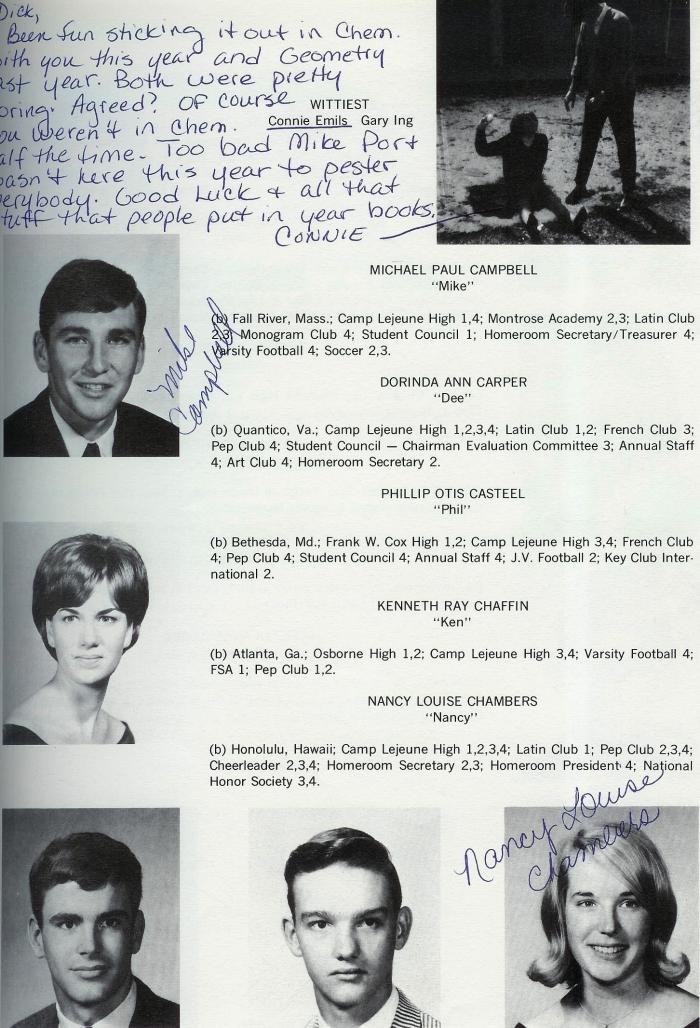 Dick,
Been fun sticking it out in Chem.
ith you this year and Geometry
ast year. Both were pretty
oring. Agreed? Of course
ou weren't in Chem.
alf the time. Too bad Mike Port
asn't here this year to pester
erybody. Good Luck & all that
tuff that people put in year books.
CONNIE
WITTIEST
Connie Emils Gary Ing
MICHAEL PAUL CAMPBELL
"Mike"
(b) Fall River, Mass.; Camp Lejeune High 1,4; Montrose Academy 2,3; Latin Club
2,3; Monogram Club 4; Student Council 1; Homeroom Secretary/Treasurer 4;
Varsity Football 4; Soccer 2,3.
Mike
Campbell
DORINDA ANN CARPER
"Dee"
(b) Quantico, Va.; Camp Lejeune High 1,2,3,4; Latin Club 1,2; French Club 3;
Pep Club 4; Student Council — Chairman Evaluation Committee 3; Annual Staff
4; Art Club 4; Homeroom Secretary 2.
PHILLIP OTIS CASTEEL
"Phil"
(b) Bethesda, Md.; Frank W. Cox High 1,2; Camp Lejeune High 3,4; French Club
4; Pep Club 4; Student Council 4; Annual Staff 4; J.V. Football 2; Key Club Inter-
national 2.
KENNETH RAY CHAFFIN
"Ken"
(b) Atlanta, Ga.; Osborne High 1,2; Camp Lejeune High 3,4; Varsity Football 4;
FSA 1; Pep Club 1,2.
NANCY LOUISE CHAMBERS
"Nancy"
(b) Honolulu, Hawaii; Camp Lejeune High 1,2,3,4; Latin Club 1; Pep Club 2,3,4;
Cheerleader 2,3,4; Homeroom Secretary 2,3; Homeroom President 4; National
Honor Society 3,4.
Nancy Louise
Chambers